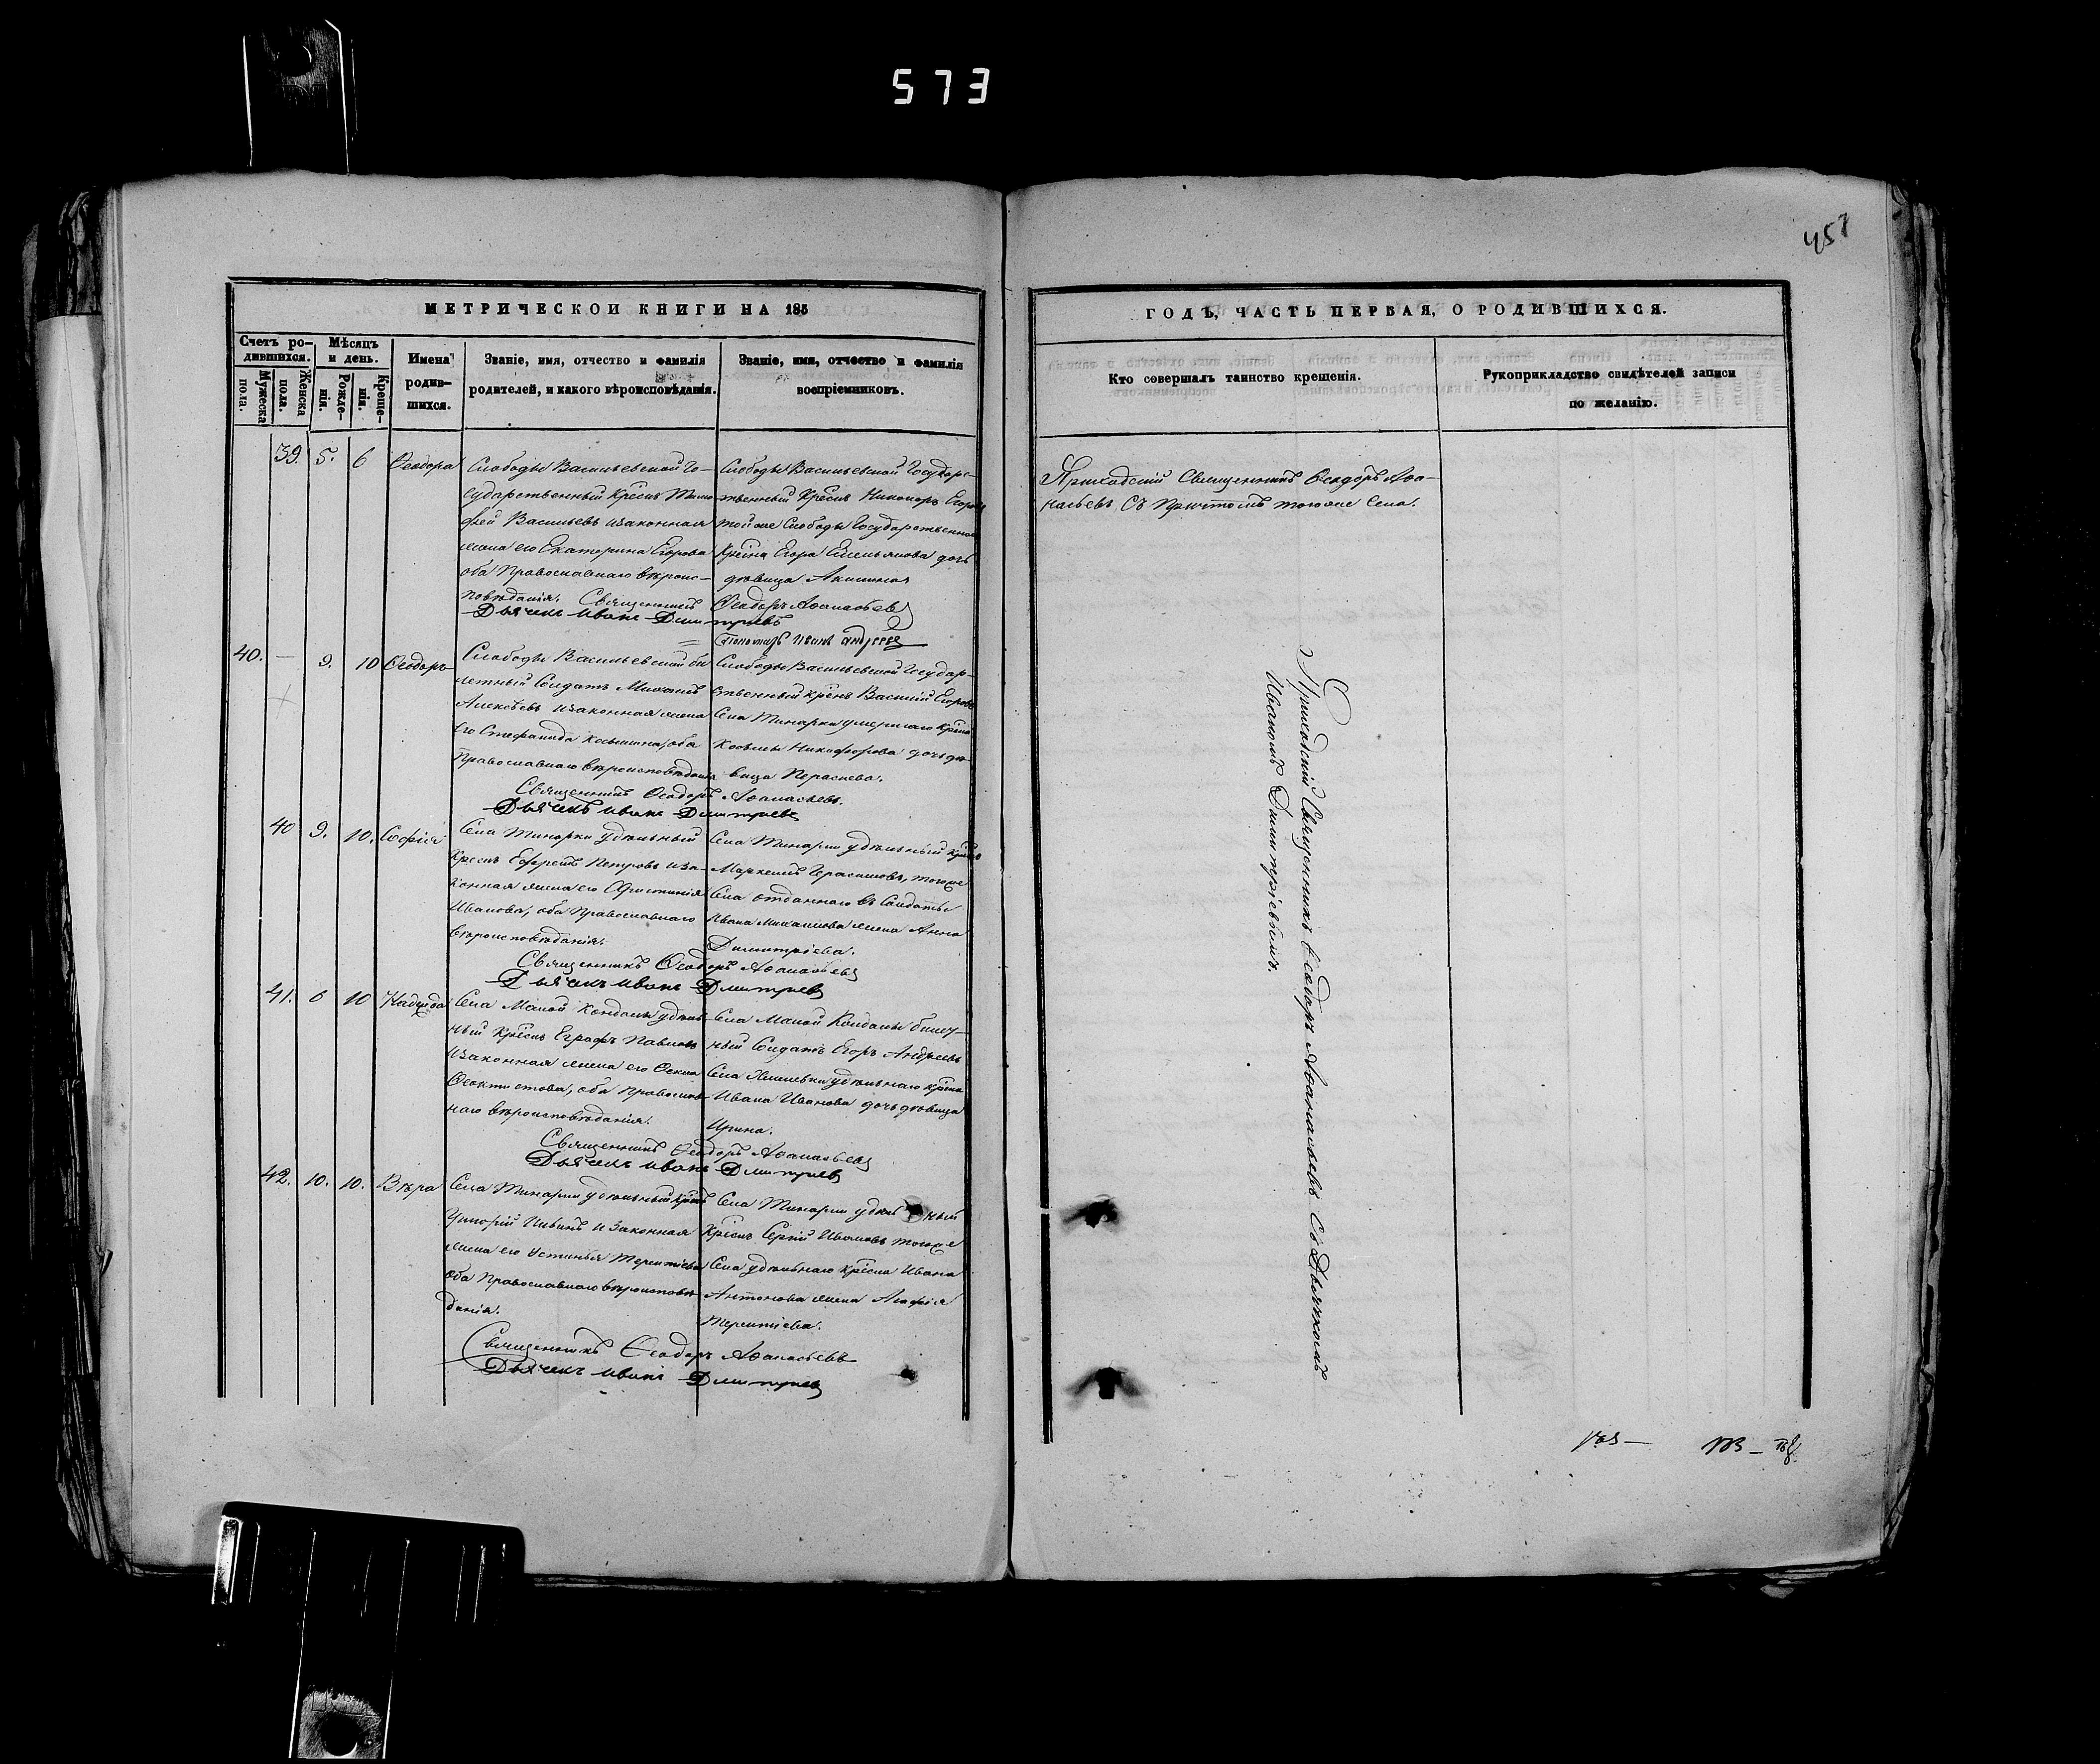 573
457
МЕТРИЧЕСКОЙ КНИГИ НА 185
Счетъ ро-
дившихся.
Мужеска
пола.
Женска
пола.
Мѣсяцъ
и день.
Рожде-
нія.
Креще-
нія.
Имена
родив-
шихся.
Званіе, имя, отчество и фамилія
родителей, и какого вѣроисповѣданія.
Званіе, имя, отчество и фамилія
воспріемниковъ.
39. 5. 6 Ѳеодора
Слободы Васильевской Го-
сударственный Креснъ Тимо-
фей Васильевъ изаконная
жена его Екатерина Егорова
оба Православнаго вѣроис-
повѣданія. Священникъ Ѳеодоръ Аѳанасьевъ
Дьячекъ Иванъ Дмитріевъ
Пономарь Иванъ Андреевъ
Слободы Васильевской Государс-
твенный Креснъ Никаноръ Егоровъ
той же Слободы Государственнаго
Крсіна Егора Емельянова дочь
дѣвица Акилина
40. — 9. 10 Ѳеодоръ
Слободы Васильевской би
летный Солдатъ Михаилъ
Алексѣевъ изаконная жена
его Стефанида Косьмина, оба
Православнаго вѣроисповѣданія
Священникъ Ѳеодоръ Аѳанасьевъ.
Дьячекъ Иванъ Дмитріевъ
Слободы Васильевской Государ-
ственный крснъ Василій Егоровъ
Села Тинарки умершаго Крсіна
Косьмы Никифорова дочь дѣ-
вица
40 9. 10. Софія
Села Тинарки удѣльный
Креснъ Ефремъ Петровъ иза-
конная жена его
Иванова, оба Православнаго
вѣроисповѣданія.
Священникъ Ѳеодоръ Аѳанасьевъ
Дьячекъ Иванъ Дмитріевъ
Села Тинарки удѣльный Крснъ
Маркелъ Герасимовъ, тогоже
Села отданнаго въ Солдаты
Ивана Михайлова жена Анна
Димитріева.
41. 6 10 Надежда
Села Малой Кандалы удѣль-
ный Крсінъ Еграфъ Павловъ
изаконная жена его
Ѳеоктистова, оба Православ-
наго вѣроисповѣданія.
Священникъ Ѳеодоръ Аѳанасьевъ
Дьячекъ Иванъ Дмитріевъ
Села Малой Кандалы билет-
ный Солдатъ Егоръ Андреевъ
Села удѣльнаго крсіна
Ивана Иванова дочь дѣвица
Ирина.
42. 10. 10. Вѣра
Села Тинарки удѣльный крснъ
Григорій и законная
жена его Устинья Терентіева
оба Православнаго вѣроисповѣ-
данія.
Священникъ Ѳеодоръ Аѳанасьевъ
Дьячекъ Иванъ Дмитріевъ
Села Тинарки удѣльный
Крсінъ Сергій Ивановъ тогоже
Села удѣльнаго Крсіна Ивана
Антонова жена Агафія
Терентіева.
ГОДЪ, ЧАСТЬ ПЕРВАЯ, О РОДИВШИХСЯ.
Кто совершалъ таинство крещенія.
Рукоприкладство свидѣтелей записи
по желанію.
Приходскій Священникъ Ѳеодоръ Аѳа-
насьевъ Съ Причтомъ тогоже Села.
Приходскій Священникъ Ѳеодоръ Аѳанасьевъ Съ Дьячкомъ
Иваномъ Димитріевымъ.